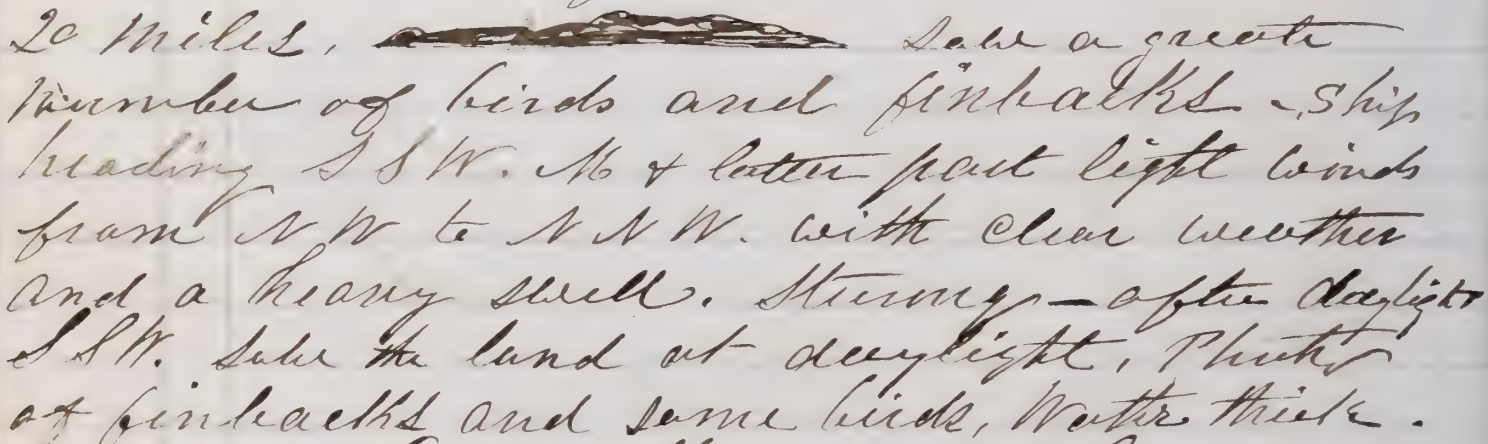 20 miles, saw a great
number of birds and finbacks - Ship
heading S S W. M & latter part light winds
from N W to N N W. with clear weather
and a heavy swell. Steering - after daylight
S S W. saw the land at daylight, Plenty
of finbacks and some birds, Water thick.